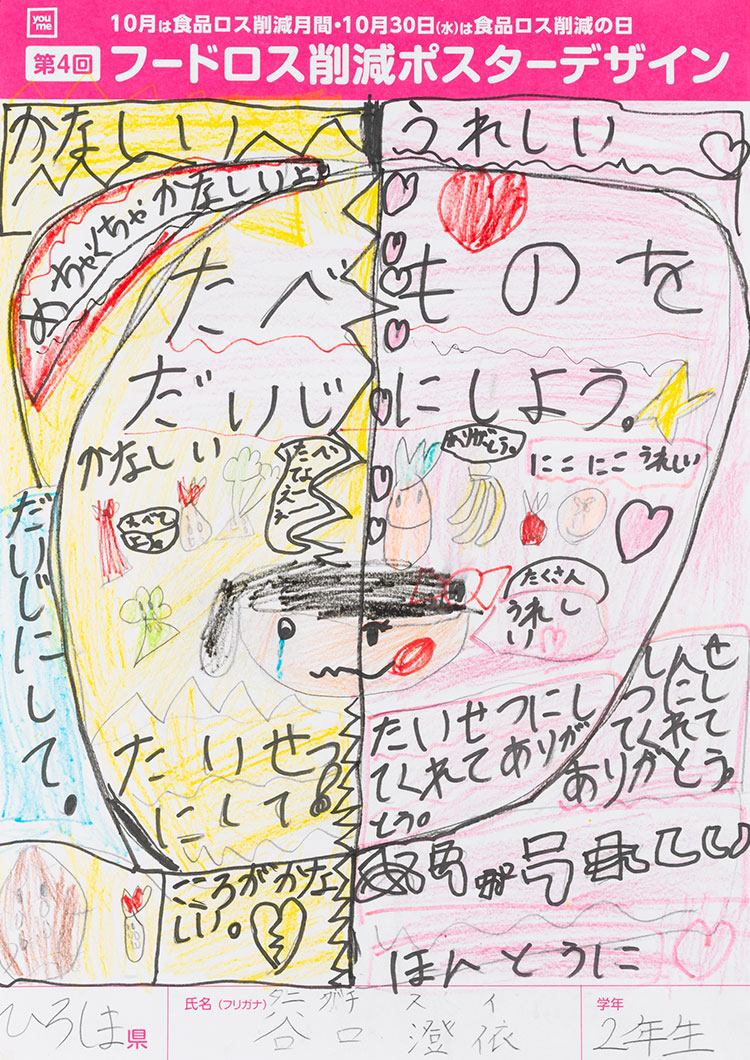 you me
10月は食品ロス削減月間・10月30日(水)は食品ロス削減の日
第4回 フードロス削減ポスターデザイン
かなしい
うれしい
めちゃくちゃかなしいよ
たべものを
だいじにしよう。
かなしい
たべてよー
ありがとう。
にこにこうれしい
たくさん
うれし
い
だいじにして。
たいせつ
にして。
たいせつにし
てくれてありが
とう。
しんせ
つにし
てくれて
ありがとう
こころがかな
しい。
ほんとうに
ひろしま県
氏名(フリガナ)
タニグチ スイ
谷口 澄依
学年
2年生